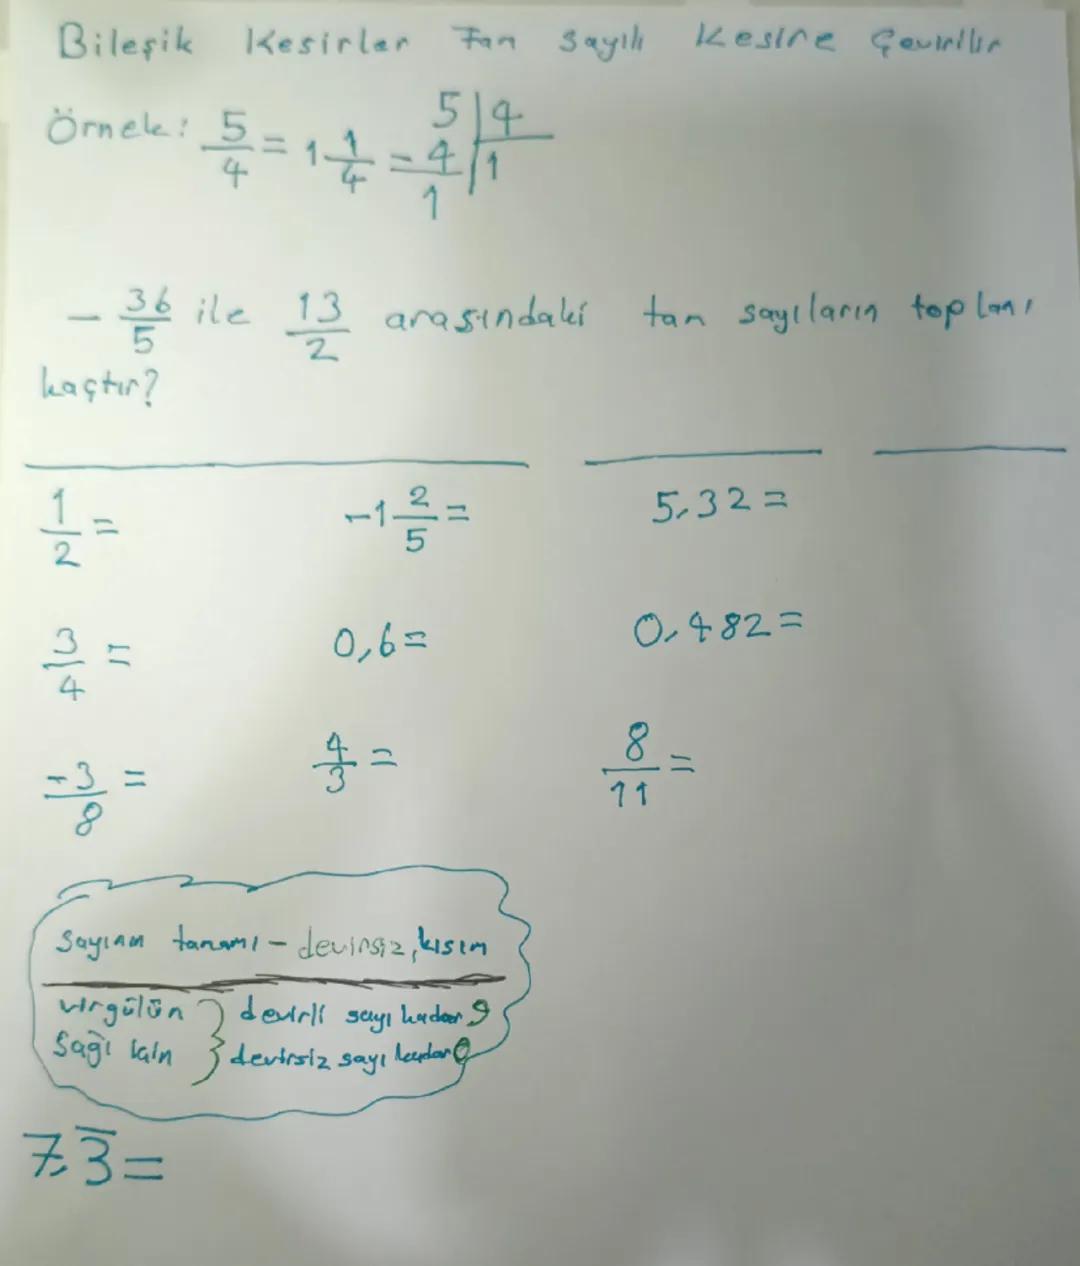 Bileşik Kesirler Tan Sayılı Kesire Çevirilir
Örnek: 5/4 = 1 1/4 = 5 | 4
4 | 1
1
- 36/5 ile 13/2 arasındaki tam sayıların toplamı
kaçtır?
1/2 = -1 2/5 = 5,32 =
3/4 = 0,6 = 0,482 =
-3/8 = 4/3 = 8/11 =
Sayının tamamı - devirsiz, kısım
virgülün } devirli sayı kadar 9
Sağı için } devirsiz sayı kadar 0
7,3̅ =